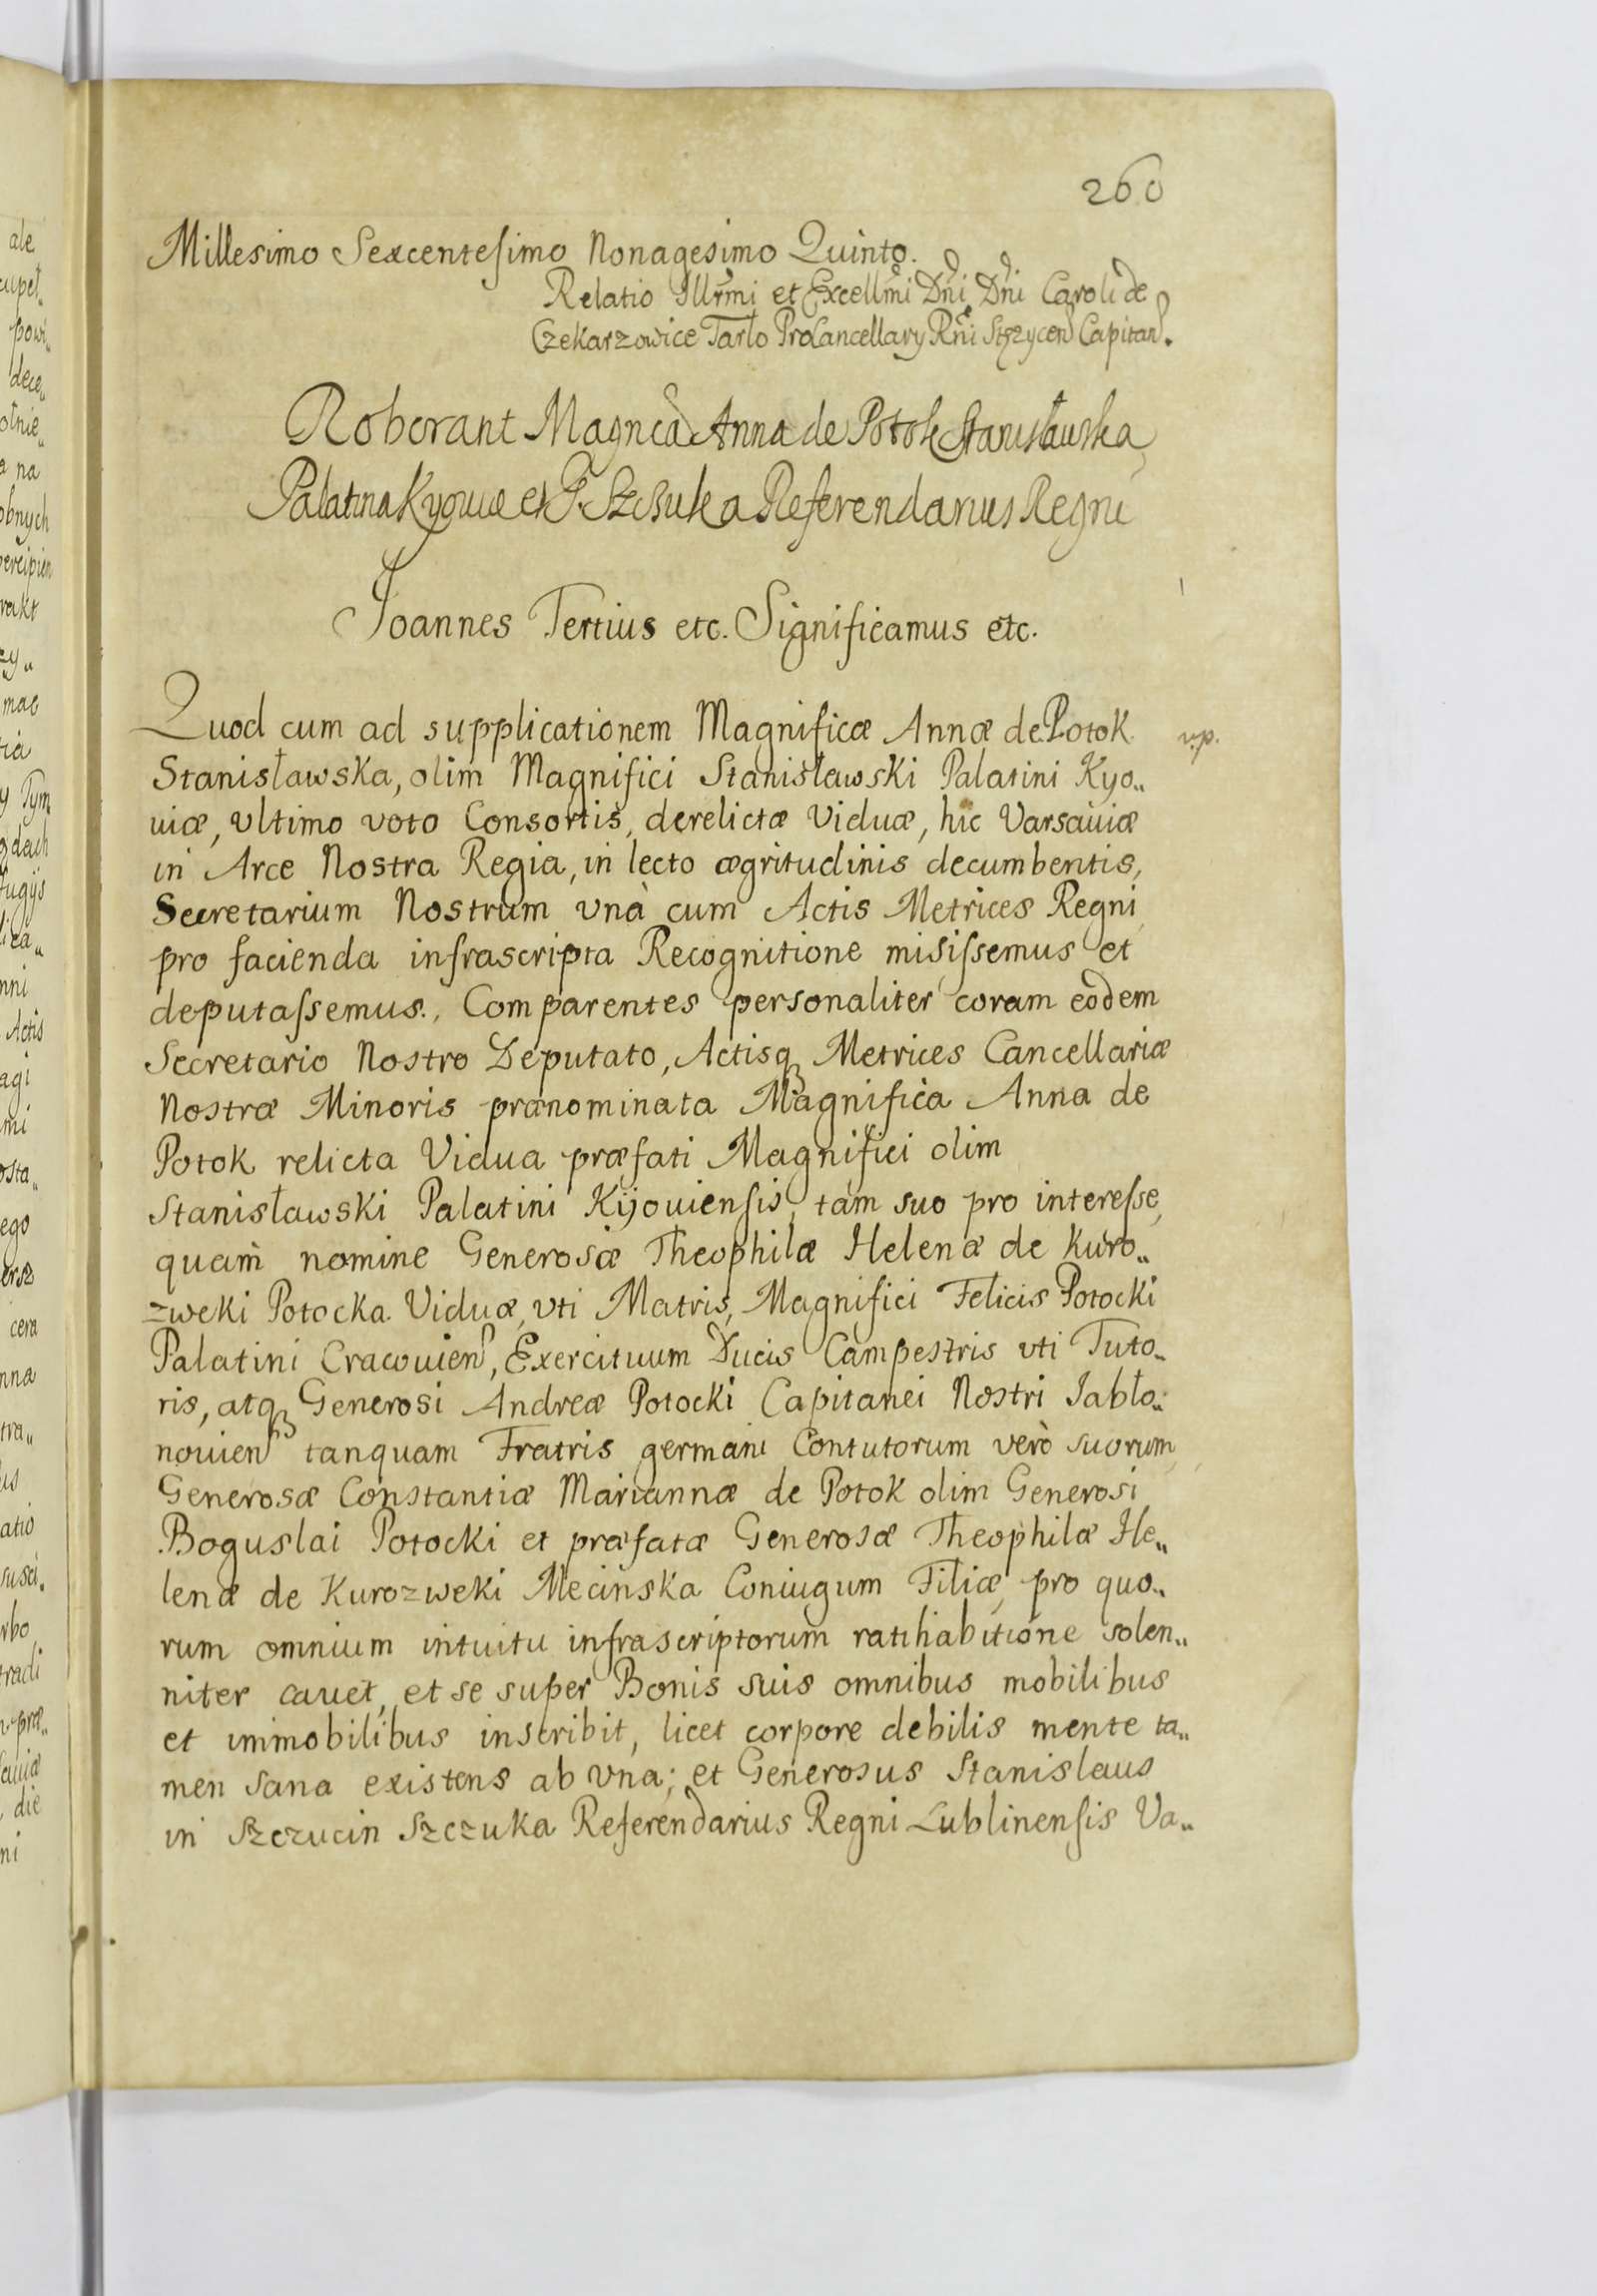 260
Millesimo Sexcentesimo Nonagesimo Quinto.
Relatio Illrmi et Excellmi Dni Dni Caroli de
Czekarzowice Tarlo ProCancellary Rni Stężycen Capitan.
Roborant Magnca Anna de Potok Stanisławska
Palatina Kyouiæ et G. Szczuka Referendarius Regni
Joannes Tertius etc. Significamus etc.
Quod cum ad supplicationem Magnificæ Annæ de Potok
Stanisławska, olim Magnifici Stanisławski Palatini Kyo„
uiæ, vltimo voto Consortis, derelictæ Viduæ, hic Varsauiæ
in Arce Nostra Regia, in lecto ægritudinis decumbentis,
Secretarium Nostrum vnà cum Actis Metrices Regni
pro facienda infrascripta Recognitione misissemus et
deputassemus., Comparentes personaliter coram eodem
Secretario Nostro Deputato, Actisq Metrices Cancellariæ
Nostræ Minoris prænominata Magnifica Anna de
Potok relicta Vidua præfati Magnifici olim
Stanisławski Palatini Kijouiensis, tam suo pro interesse,
quam nomine Generosæ Theophilæ Helenæ de Kuro„
zweki Potocka Viduæ, vti Matris, Magnifici Felicis Potocki
Palatini Cracouien, Exercituum Ducis Campestris vti Tuto„
ris, atq Generosi Andreæ Potocki Capitanei Nostri Jabło„
nouien tanquam Fratris germani Contutorum verò suorum
Generosæ Constantiæ Mariannæ de Potok olim Generosi
Boguslai Potocki et præfatæ Generosæ Theophilæ He„
lenæ de Kurozweki Mecinska Coniugum Filiæ, pro quo„
rum omnium intuitu infrascriptorum ratihabitione solen„
niter cauet, et se super Bonis suis omnibus mobilibus
et immobilibus inscribit, licet corpore debilis mente ta„
men sana existens ab vna; et Generosus Stanislaus
in Szczucin Szczuka Referendarius Regni Lublinensis Va„